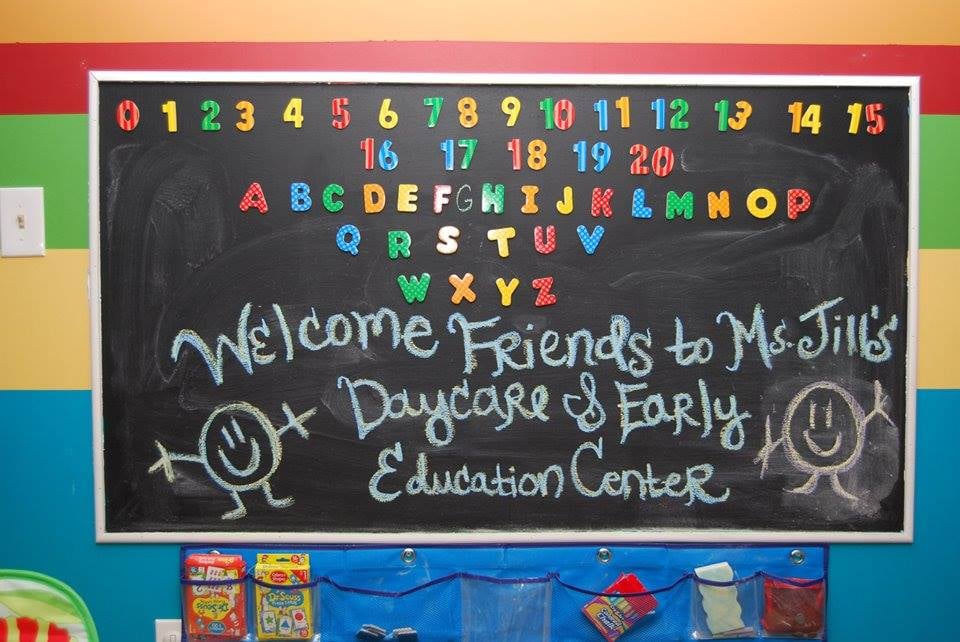 0 1 2 3 4 5 6 7 8 9 10 11 12 13 14 15
16 17 18 19 20
A B C D E F G H I J K L M N O P
Q R S T U V
W X Y Z
Welcome Friends to Ms. Jill's
Daycare & Early
Education Center
Dr. Seuss
Dr. Seuss